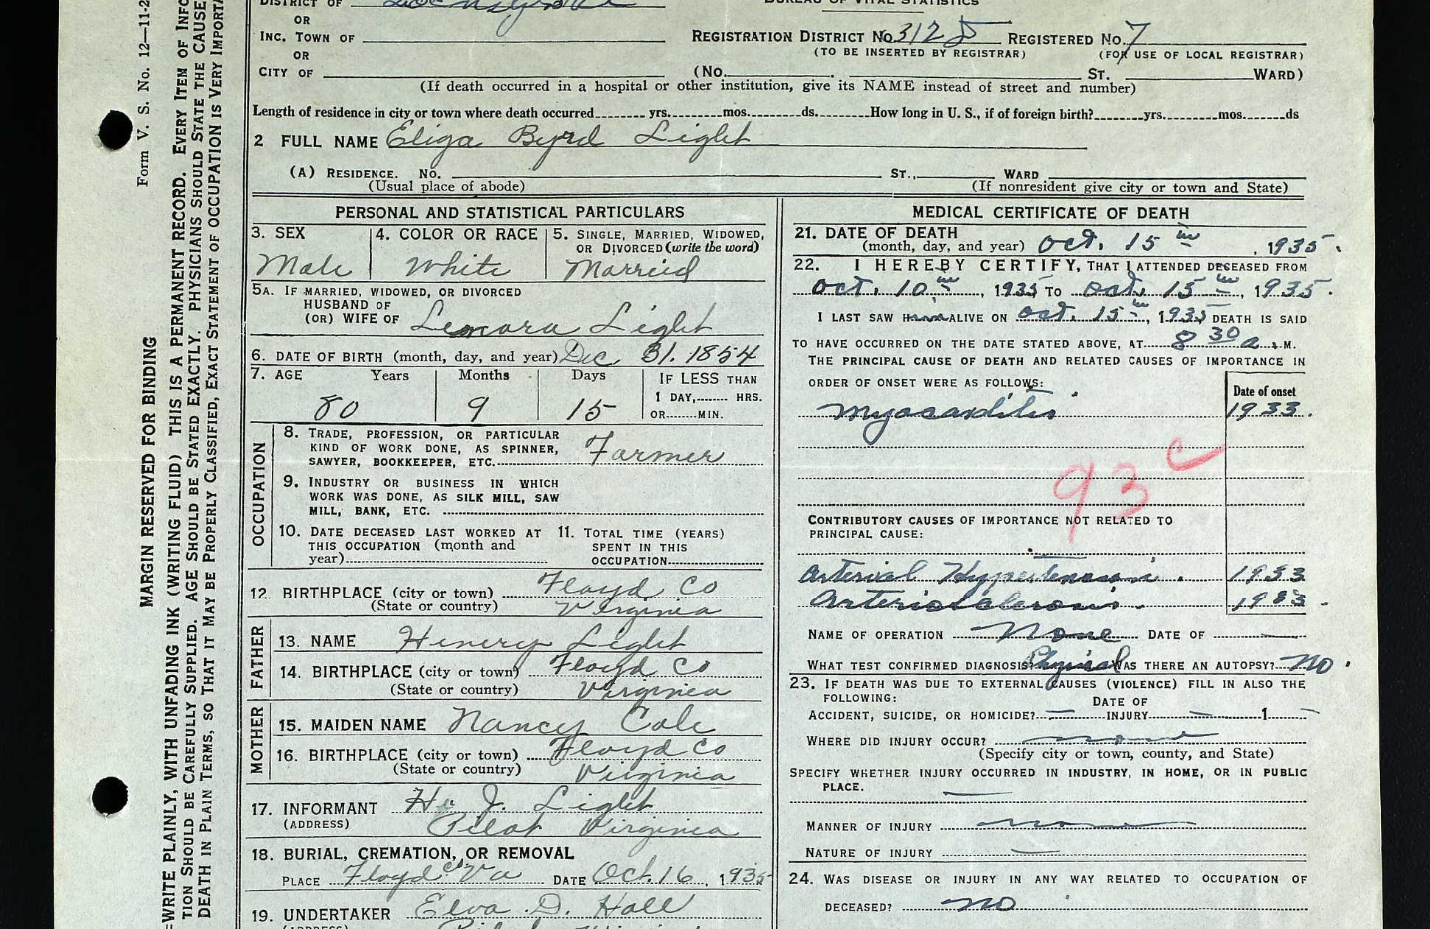 DISTRICT OF
BUREAU OF VITAL STATISTICS
OR
INC. TOWN OF
REGISTRATION DISTRICT No. 3125 REGISTERED No. 7
OR
(TO BE INSERTED BY REGISTRAR) (FOR USE OF LOCAL REGISTRAR)
CITY OF (No. ST. WARD)
(If death occurred in a hospital or other institution, give its NAME instead of street and number)
Length of residence in city or town where death occurred yrs. mos. ds. How long in U. S., if of foreign birth? yrs. mos. ds
2 FULL NAME Eliza Byrd Light
(A) RESIDENCE. No. ST., WARD
(Usual place of abode) (If nonresident give city or town and State)
PERSONAL AND STATISTICAL PARTICULARS
3. SEX Male
4. COLOR OR RACE White
5. SINGLE, MARRIED, WIDOWED,
OR DIVORCED (write the word)
Marreid
5A. IF MARRIED, WIDOWED, OR DIVORCED
HUSBAND OF
(OR) WIFE OF Lenora Light
6. DATE OF BIRTH (month, day, and year) Dec 31. 1854
7. AGE Years Months Days IF LESS THAN
80 9 15 1 DAY, HRS.
OR MIN.
OCCUPATION
8. TRADE, PROFESSION, OR PARTICULAR
KIND OF WORK DONE, AS SPINNER,
SAWYER, BOOKKEEPER, ETC. Farmer
9. INDUSTRY OR BUSINESS IN WHICH
WORK WAS DONE, AS SILK MILL, SAW
MILL, BANK, ETC.
10. DATE DECEASED LAST WORKED AT
THIS OCCUPATION (month and
year)
11. TOTAL TIME (YEARS)
SPENT IN THIS
OCCUPATION
12. BIRTHPLACE (city or town) Floyd Co
(State or country) Virginia
FATHER
13. NAME Henery Light
14. BIRTHPLACE (city or town) Floyd Co
(State or country) Virginia
MOTHER
15. MAIDEN NAME Nancy Cole
16. BIRTHPLACE (city or town) Floyd Co
(State or country) Virginia
17. INFORMANT H. J. Light
(ADDRESS) Pilot Virginia
18. BURIAL, CREMATION, OR REMOVAL
PLACE Floyd Co Va DATE Oct. 16, 1935
19. UNDERTAKER Elva D. Hall
MEDICAL CERTIFICATE OF DEATH
21. DATE OF DEATH
(month, day, and year) Oct. 15th, 1935.
22. I HEREBY CERTIFY, THAT I ATTENDED DECEASED FROM
Oct. 10th, 1935 TO Oct. 15th, 1935.
I LAST SAW him ALIVE ON Oct. 15th, 1935 DEATH IS SAID
TO HAVE OCCURRED ON THE DATE STATED ABOVE, AT 8 30 a. M.
THE PRINCIPAL CAUSE OF DEATH AND RELATED CAUSES OF IMPORTANCE IN
ORDER OF ONSET WERE AS FOLLOWS:
Date of onset
Myocarditis 1933.
93 c
CONTRIBUTORY CAUSES OF IMPORTANCE NOT RELATED TO
PRINCIPAL CAUSE:
Arterial Hypertension. 1933
Arteriosclerosis. 1933.
NAME OF OPERATION None DATE OF
WHAT TEST CONFIRMED DIAGNOSIS? Physical WAS THERE AN AUTOPSY? No.
23. IF DEATH WAS DUE TO EXTERNAL CAUSES (VIOLENCE) FILL IN ALSO THE
FOLLOWING:
DATE OF
ACCIDENT, SUICIDE, OR HOMICIDE? INJURY 1
WHERE DID INJURY OCCUR? none
(Specify city or town, county, and State)
SPECIFY WHETHER INJURY OCCURRED IN INDUSTRY, IN HOME, OR IN PUBLIC
PLACE.
MANNER OF INJURY none
NATURE OF INJURY
24. WAS DISEASE OR INJURY IN ANY WAY RELATED TO OCCUPATION OF
DECEASED? no
Form V. S. No. 12—11-2
MARGIN RESERVED FOR BINDING
WRITE PLAINLY, WITH UNFADING INK (WRITING FLUID) THIS IS A PERMANENT RECORD. EVERY ITEM OF INFO
TION SHOULD BE CAREFULLY SUPPLIED. AGE SHOULD BE STATED EXACTLY. PHYSICIANS SHOULD STATE THE CAUSE
DEATH IN PLAIN TERMS, SO THAT IT MAY BE PROPERLY CLASSIFIED, EXACT STATEMENT OF OCCUPATION IS VERY IMPORTA